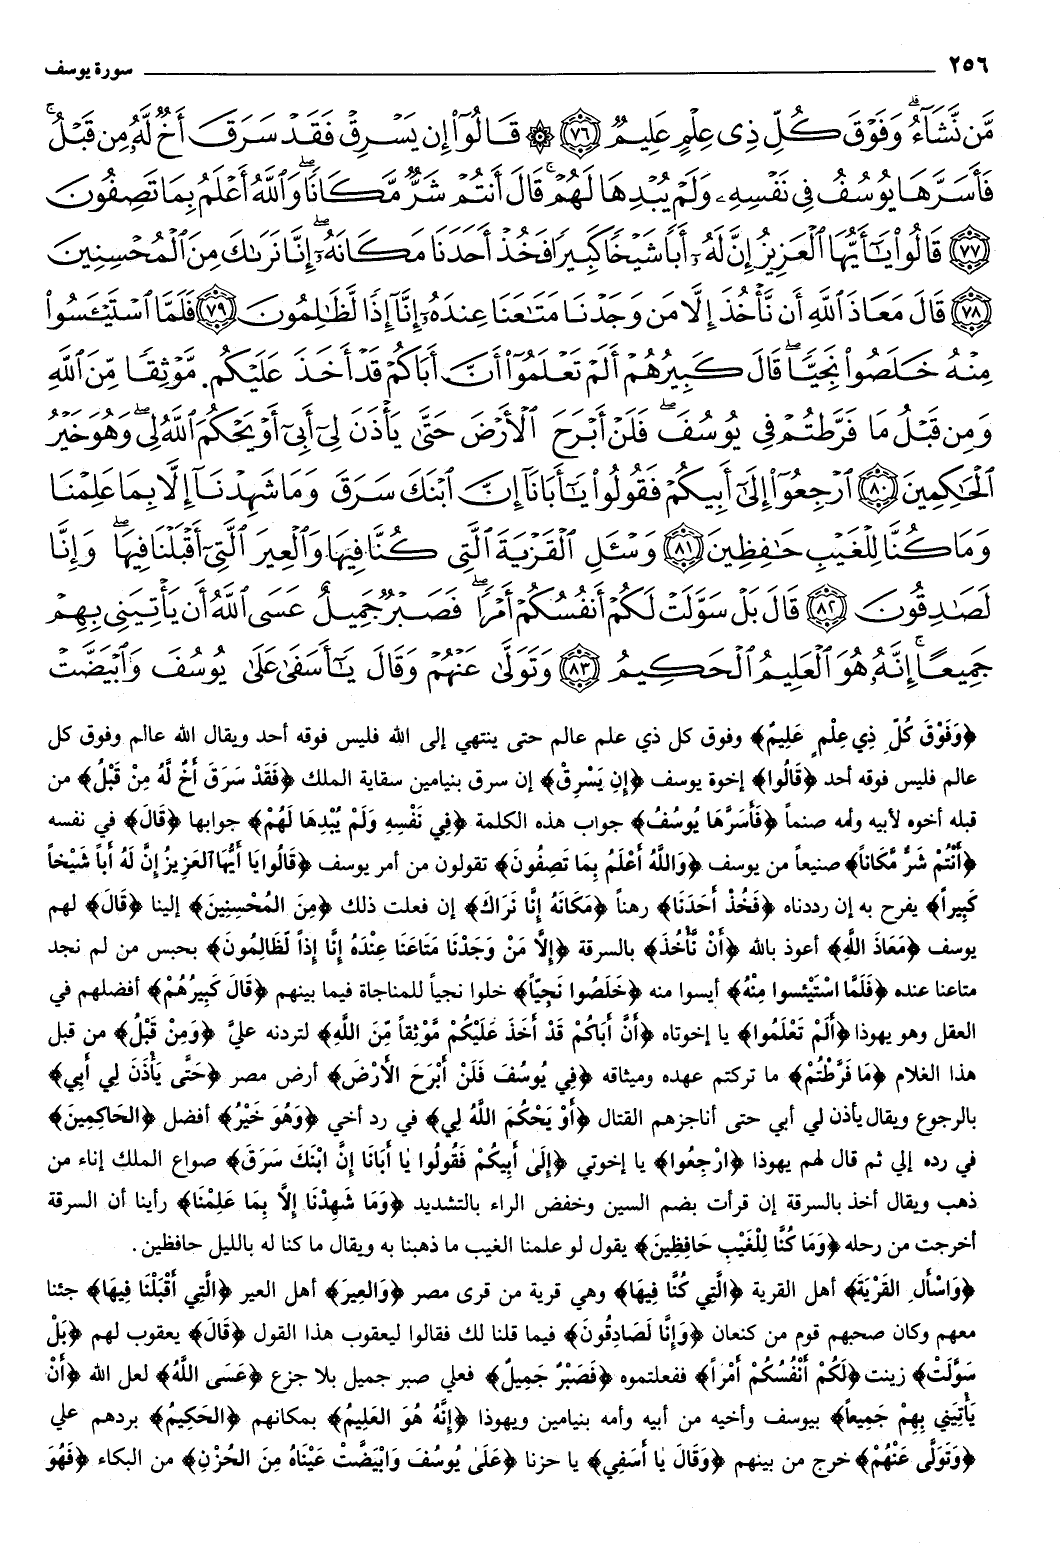 ٢٥٦ سورة يوسف
مَّن نَّشَآءُ ۗ وَفَوْقَ كُلِّ ذِى عِلْمٍ عَلِيمٌ ﴿٧٦﴾ ۞ قَالُوٓا۟ إِن يَسْرِقْ فَقَدْ سَرَقَ أَخٌ لَّهُۥ مِن قَبْلُ ۚ
فَأَسَرَّهَا يُوسُفُ فِى نَفْسِهِۦ وَلَمْ يُبْدِهَا لَهُمْ ۚ قَالَ أَنتُمْ شَرٌّ مَّكَانًا ۖ وَٱللَّهُ أَعْلَمُ بِمَا تَصِفُونَ
﴿٧٧﴾ قَالُوا۟ يَـٰٓأَيُّهَا ٱلْعَزِيزُ إِنَّ لَهُۥٓ أَبًا شَيْخًا كَبِيرًا فَخُذْ أَحَدَنَا مَكَانَهُۥٓ ۖ إِنَّا نَرَىٰكَ مِنَ ٱلْمُحْسِنِينَ
﴿٧٨﴾ قَالَ مَعَاذَ ٱللَّهِ أَن نَّأْخُذَ إِلَّا مَن وَجَدْنَا مَتَـٰعَنَا عِندَهُۥٓ إِنَّآ إِذًا لَّظَـٰلِمُونَ ﴿٧٩﴾ فَلَمَّا ٱسْتَيْـَٔسُوا۟
مِنْهُ خَلَصُوا۟ نَجِيًّا ۖ قَالَ كَبِيرُهُمْ أَلَمْ تَعْلَمُوٓا۟ أَنَّ أَبَاكُمْ قَدْ أَخَذَ عَلَيْكُم مَّوْثِقًا مِّنَ ٱللَّهِ
وَمِن قَبْلُ مَا فَرَّطتُمْ فِى يُوسُفَ ۖ فَلَنْ أَبْرَحَ ٱلْأَرْضَ حَتَّىٰ يَأْذَنَ لِىٓ أَبِىٓ أَوْ يَحْكُمَ ٱللَّهُ لِى ۖ وَهُوَ خَيْرُ
ٱلْحَـٰكِمِينَ ﴿٨٠﴾ ٱرْجِعُوٓا۟ إِلَىٰٓ أَبِيكُمْ فَقُولُوا۟ يَـٰٓأَبَانَآ إِنَّ ٱبْنَكَ سَرَقَ وَمَا شَهِدْنَآ إِلَّا بِمَا عَلِمْنَا
وَمَا كُنَّا لِلْغَيْبِ حَـٰفِظِينَ ﴿٨١﴾ وَسْـَٔلِ ٱلْقَرْيَةَ ٱلَّتِى كُنَّا فِيهَا وَٱلْعِيرَ ٱلَّتِىٓ أَقْبَلْنَا فِيهَا ۖ وَإِنَّا
لَصَـٰدِقُونَ ﴿٨٢﴾ قَالَ بَلْ سَوَّلَتْ لَكُمْ أَنفُسُكُمْ أَمْرًا ۖ فَصَبْرٌ جَمِيلٌ ۖ عَسَى ٱللَّهُ أَن يَأْتِيَنِى بِهِمْ
جَمِيعًا ۚ إِنَّهُۥ هُوَ ٱلْعَلِيمُ ٱلْحَكِيمُ ﴿٨٣﴾ وَتَوَلَّىٰ عَنْهُمْ وَقَالَ يَـٰٓأَسَفَىٰ عَلَىٰ يُوسُفَ وَٱبْيَضَّتْ
﴿وَفَوْقَ كُلِّ ذِي عِلْمٍ عَلِيمٌ﴾ وفوق كل ذي علم عالم حتى ينتهي إلى الله فليس فوقه أحد ويقال الله عالم وفوق كل
عالم فليس فوقه أحد ﴿قَالُوا﴾ إخوة يوسف ﴿إِن يَسْرِقْ﴾ إن سرق بنيامين سقاية الملك ﴿فَقَدْ سَرَقَ أَخٌ لَّهُ مِنْ قَبْلُ﴾ من
قبله أخوه لأبيه وأمه صنماً ﴿فَأَسَرَّهَا يُوسُفُ﴾ جواب هذه الكلمة ﴿فِي نَفْسِهِ وَلَمْ يُبْدِهَا لَهُمْ﴾ جوابها ﴿قَالَ﴾ في نفسه
﴿أَنْتُمْ شَرٌّ مَّكَاناً﴾ صنيعاً من يوسف ﴿وَاللَّهُ أَعْلَمُ بِمَا تَصِفُونَ﴾ تقولون من أمر يوسف ﴿قَالُوا يَا أَيُّهَا الْعَزِيزُ إِنَّ لَهُ أَباً شَيْخاً
كَبِيراً﴾ يفرح به إن رددناه ﴿فَخُذْ أَحَدَنَا﴾ رهناً ﴿مَكَانَهُ إِنَّا نَرَاكَ﴾ إن فعلت ذلك ﴿مِنَ المُحْسِنِينَ﴾ إلينا ﴿قَالَ﴾ لهم
يوسف ﴿مَعَاذَ اللَّهِ﴾ أعوذ بالله ﴿أَنْ نَّأْخُذَ﴾ بالسرقة ﴿إِلَّا مَنْ وَجَدْنَا مَتَاعَنَا عِنْدَهُ إِنَّا إِذاً لَّظَالِمُونَ﴾ بحبس من لم نجد
متاعنا عنده ﴿فَلَمَّا اسْتَيْئَسوا مِنْهُ﴾ أيسوا منه ﴿خَلَصُوا نَجِيّاً﴾ خلوا نجياً للمناجاة فيما بينهم ﴿قَالَ كَبِيرُهُمْ﴾ أفضلهم في
العقل وهو يهوذا ﴿أَلَمْ تَعْلَمُوا﴾ يا إخوتاه ﴿أَنَّ أَبَاكُمْ قَدْ أَخَذَ عَلَيْكُمْ مَّوْثِقاً مِّنَ اللَّهِ﴾ لتردنه عليَّ ﴿وَمِنْ قَبْلُ﴾ من قبل
هذا الغلام ﴿مَا فَرَّطْتُمْ﴾ ما تركتم عهده وميثاقه ﴿فِي يُوسُفَ فَلَنْ أَبْرَحَ الأَرْضَ﴾ أرض مصر ﴿حَتَّى يَأْذَنَ لِي أَبِي﴾
بالرجوع ويقال يأذن لي أبي حتى أناجزهم القتال ﴿أَوْ يَحْكُمَ اللَّهُ لِي﴾ في رد أخي ﴿وَهُوَ خَيْرُ﴾ أفضل ﴿الحَاكِمِينَ﴾
في رده إلي ثم قال لهم يهوذا ﴿ارْجِعُوا﴾ يا إخوتي ﴿إِلَى أَبِيكُمْ فَقُولُوا يَا أَبَانَا إِنَّ ابْنَكَ سَرَقَ﴾ صواع الملك إناء من
ذهب ويقال أخذ بالسرقة إن قرأت بضم السين وخفض الراء بالتشديد ﴿وَمَا شَهِدْنَا إِلَّا بِمَا عَلِمْنَا﴾ رأينا أن السرقة
أخرجت من رحله ﴿وَمَا كُنَّا لِلْغَيْبِ حَافِظِينَ﴾ يقول لو علمنا الغيب ما ذهبنا به ويقال ما كنا له بالليل حافظين.
﴿وَاسْأَلِ القَرْيَةَ﴾ أهل القرية ﴿الَّتِي كُنَّا فِيهَا﴾ وهي قرية من قرى مصر ﴿وَالعِيرَ﴾ أهل العير ﴿الَّتِي أَقْبَلْنَا فِيهَا﴾ جئنا
معهم وكان صحبهم قوم من كنعان ﴿وَإِنَّا لَصَادِقُونَ﴾ فيما قلنا لك فقالوا ليعقوب هذا القول ﴿قَالَ﴾ يعقوب لهم ﴿بَلْ
سَوَّلَتْ﴾ زينت ﴿لَكُمْ أَنْفُسُكُمْ أَمْراً﴾ ففعلتموه ﴿فَصَبْرٌ جَمِيلٌ﴾ فعلي صبر جميل بلا جزع ﴿عَسَى اللَّهُ﴾ لعل الله ﴿أَنْ
يَأْتِيَنِي بِهِمْ جَمِيعاً﴾ بيوسف وأخيه من أبيه وأمه بنيامين ويهوذا ﴿إِنَّهُ هُوَ العَلِيمُ﴾ بمكانهم ﴿الحَكِيمُ﴾ بردهم علي
﴿وَتَوَلَّى عَنْهُمْ﴾ خرج من بينهم ﴿وَقَالَ يَا أَسَفِي﴾ يا حزنا ﴿عَلَى يُوسُفَ وَابْيَضَّتْ عَيْنَاهُ مِنَ الحُزْنِ﴾ من البكاء ﴿فَهُوَ